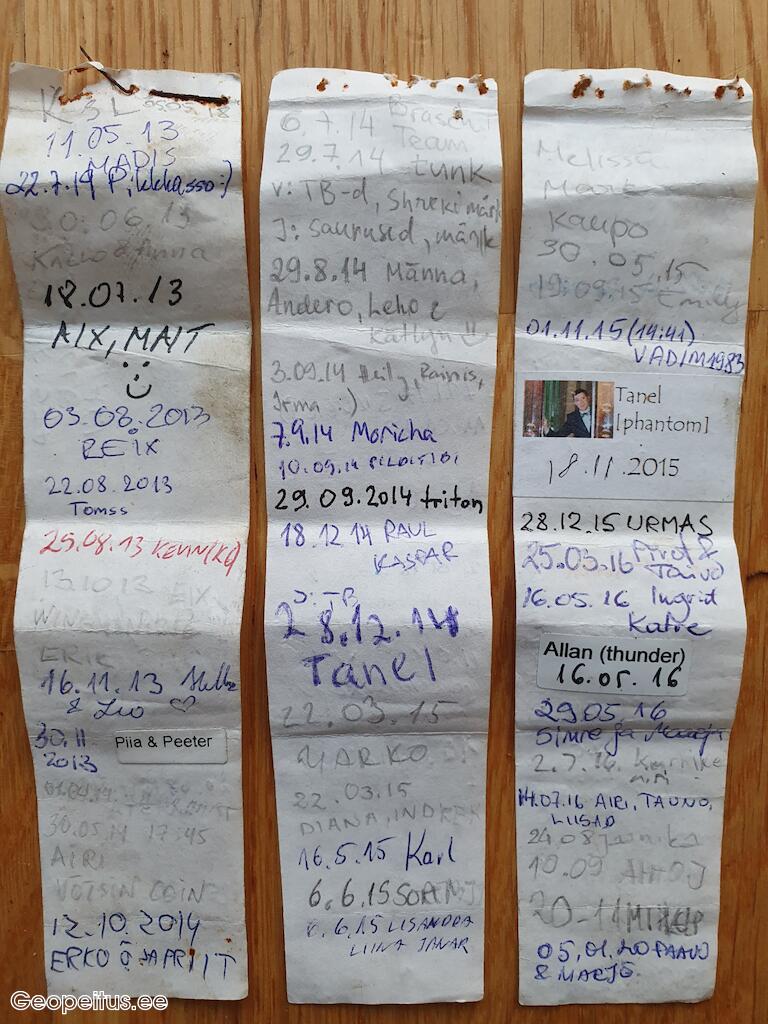 11.05.13
MADIS
22.7.19 Pikkasso:)
30.06.13
& Anna
18.07.13
AIX, MAIT
03.08.2013
REIX
22.08.2013
Tomss
25.08.13
13.10.13
ERIK
16.11.13
& Leo ♡
30.11
2013
Piia & Peeter
30.05.14 17:45
AIRI
VÕTSIN COIN
12.10.2014
ERKO Õ JA PRIIT
6.7.14
Team
29.7.14 tunk
v: TB-d,
J: saurused, märk
29.8.14 Männa,
Andero, Leho &
Katlyn
3.09.14 Heily, Rainis,
Irma :)
7.9.14 Moricha
10.09.14
29.09.2014 triton
18.12.14 RAUL
KASPAR
J: TB
28.12.14
Tanel
22.03.15
MARKO
22.03.15
DIANA, INDREK
16.5.15 Karl
6.6.15
6.6.15 LISANDRA
LIINA JANAR
Melissa
Kaupo
30.05.15
19.09.15 Emily
01.11.15 (14:41)
VADIM1983
Tanel
[phantom]
18.11.2015
28.12.15 URMAS
25.03.16 &
Taivo
16.05.16 Ingrid
Katre
Allan (thunder)
16.05.16
29.05.16
Simre ja
2.7.16
14.07.16 AIRI, TAUNO,
24.08 Jaanika
10.09
20-11
05.01.20 PAAVO
& MARJE
Geopeitus.ee